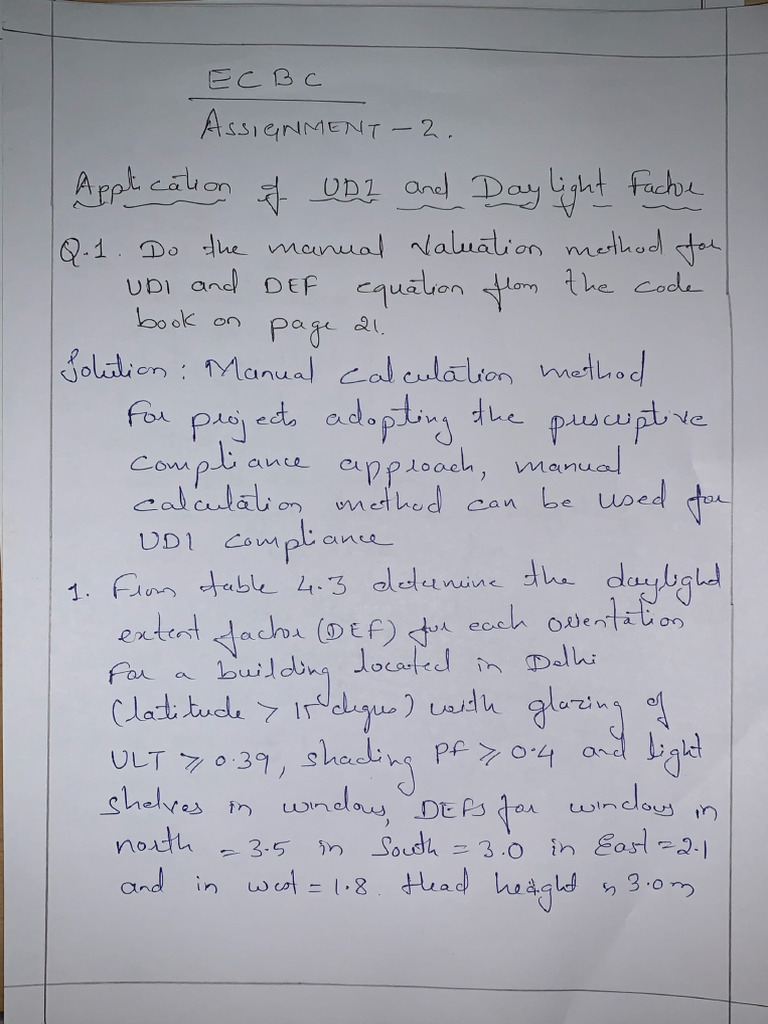 ECBC
ASSIGNMENT - 2.
Application of UDI and Daylight Factor
Q.1. Do the manual Valuation method for
UDI and DEF equation from the code
book on page 21.
Solution: Manual calculation method
For projects adopting the prescriptive
compliance approach, manual
calculation method can be used for
UDI compliance
1. From table 4.3 determine the daylight
extent factor (DEF) for each orientation
For a building located in Delhi
(latitude > 15 degrees) with glazing of
VLT ≥ 0.39, shading PF ≥ 0.4 and light
shelves in windows, DEFs for windows in
north = 3.5 in South = 3.0 in East = 2.1
and in west = 1.8. Head height is 3.0m